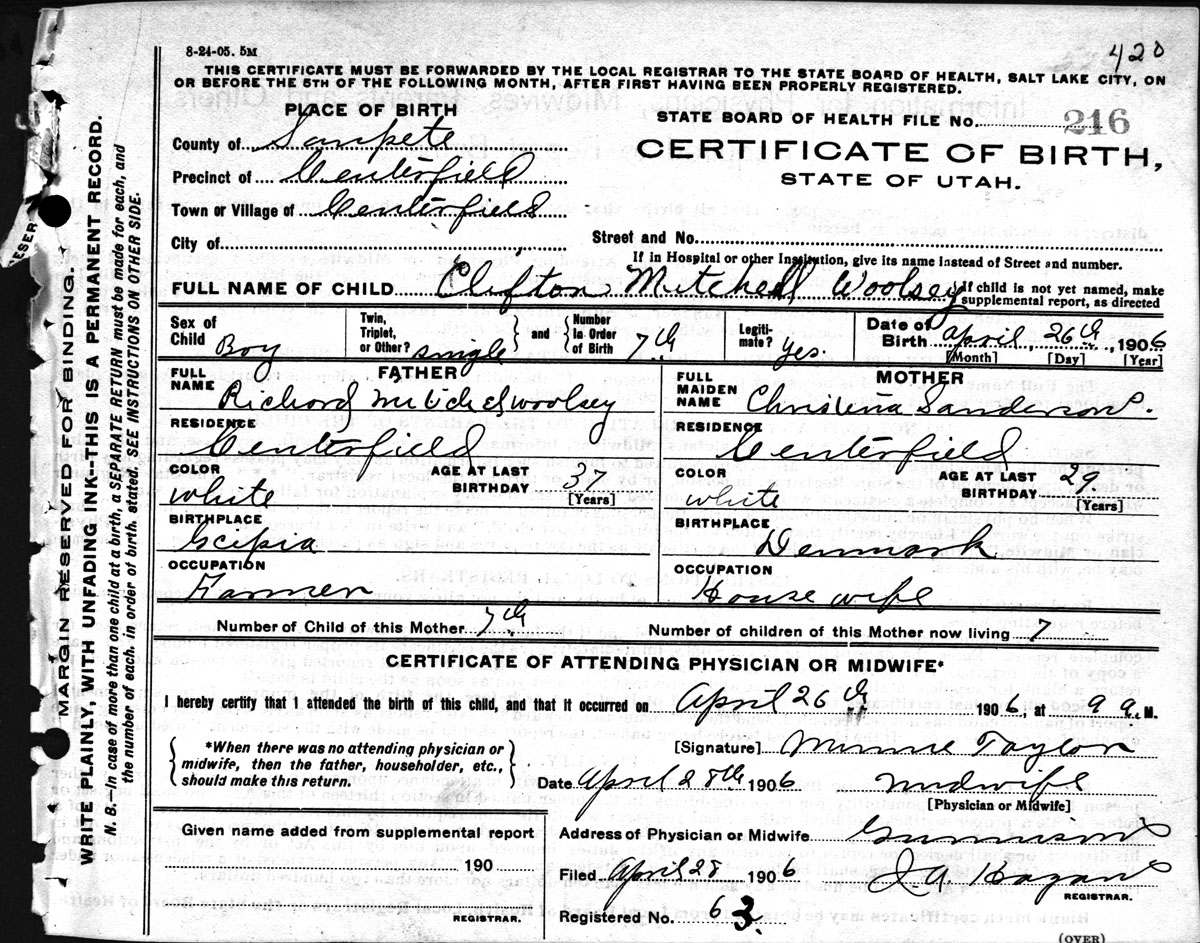 8-24-05. 5M
420
THIS CERTIFICATE MUST BE FORWARDED BY THE LOCAL REGISTRAR TO THE STATE BOARD OF HEALTH, SALT LAKE CITY, ON
OR BEFORE THE 5TH OF THE FOLLOWING MONTH, AFTER FIRST HAVING BEEN PROPERLY REGISTERED.
PLACE OF BIRTH
County of Sanpete
Precinct of Centerfield
Town or Village of Centerfield
City of
STATE BOARD OF HEALTH FILE No. 216
CERTIFICATE OF BIRTH,
STATE OF UTAH.
Street and No.
If in Hospital or other Institution, give its name instead of Street and number.
FULL NAME OF CHILD Clifton Mitchell Woolsey
If child is not yet named, make
supplemental report, as directed
Sex of Child Boy
Twin, Triplet, or Other? single
and
Number in Order of Birth 7th
Legitimate? Yes.
Date of Birth April, 26th, 1906
[Month] [Day] [Year]
FATHER
FULL NAME Richard Mitchel Woolsey
RESIDENCE
Centerfield
COLOR white
AGE AT LAST BIRTHDAY
[Years]
BIRTHPLACE
Scipia
OCCUPATION
Farmer
MOTHER
FULL MAIDEN NAME Christena Sanderson.
RESIDENCE
Centerfield
COLOR white
AGE AT LAST BIRTHDAY 29
[Years]
BIRTHPLACE
Denmark
OCCUPATION
House wife
Number of Child of this Mother 7th
Number of children of this Mother now living 7
CERTIFICATE OF ATTENDING PHYSICIAN OR MIDWIFE*
I hereby certify that I attended the birth of this child, and that it occurred on April 26th 1906, at 9 a. M.
*When there was no attending physician or
midwife, then the father, householder, etc.,
should make this return.
[Signature] Minnie Taylor
Date April 28th 1906 midwife
[Physician or Midwife]
Given name added from supplemental report
190
REGISTRAR.
Address of Physician or Midwife Gunnison
Filed April 28 1906 J A Hagan
REGISTRAR.
Registered No. 63
(OVER)
MARGIN RESERVED FOR BINDING.
WRITE PLAINLY, WITH UNFADING INK--THIS IS A PERMANENT RECORD.
N. B.—In case of more than one child at a birth, a SEPARATE RETURN must be made for each, and
the number of each, in order of birth, stated. SEE INSTRUCTIONS ON OTHER SIDE.